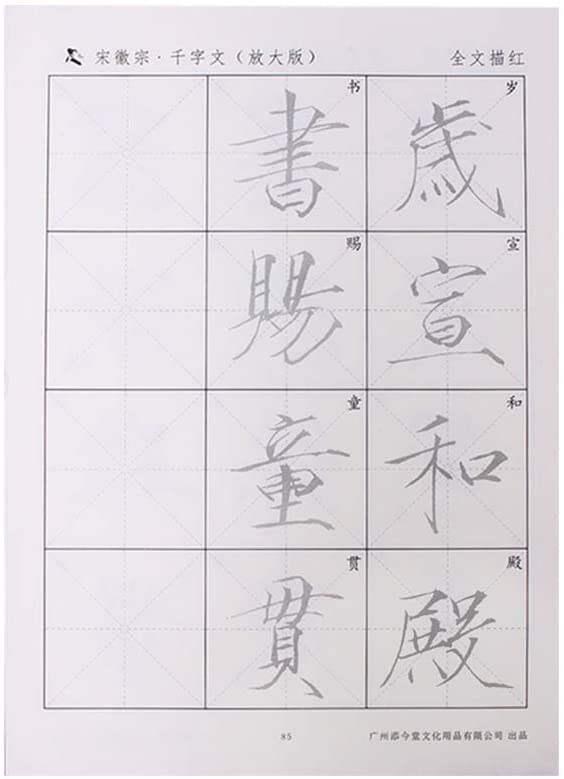 宋徽宗·千字文（放大版）
全文描红
歲宣和殿
岁宣和殿
書賜童貫
书赐童贯
85
广州添今堂文化用品有限公司 出品